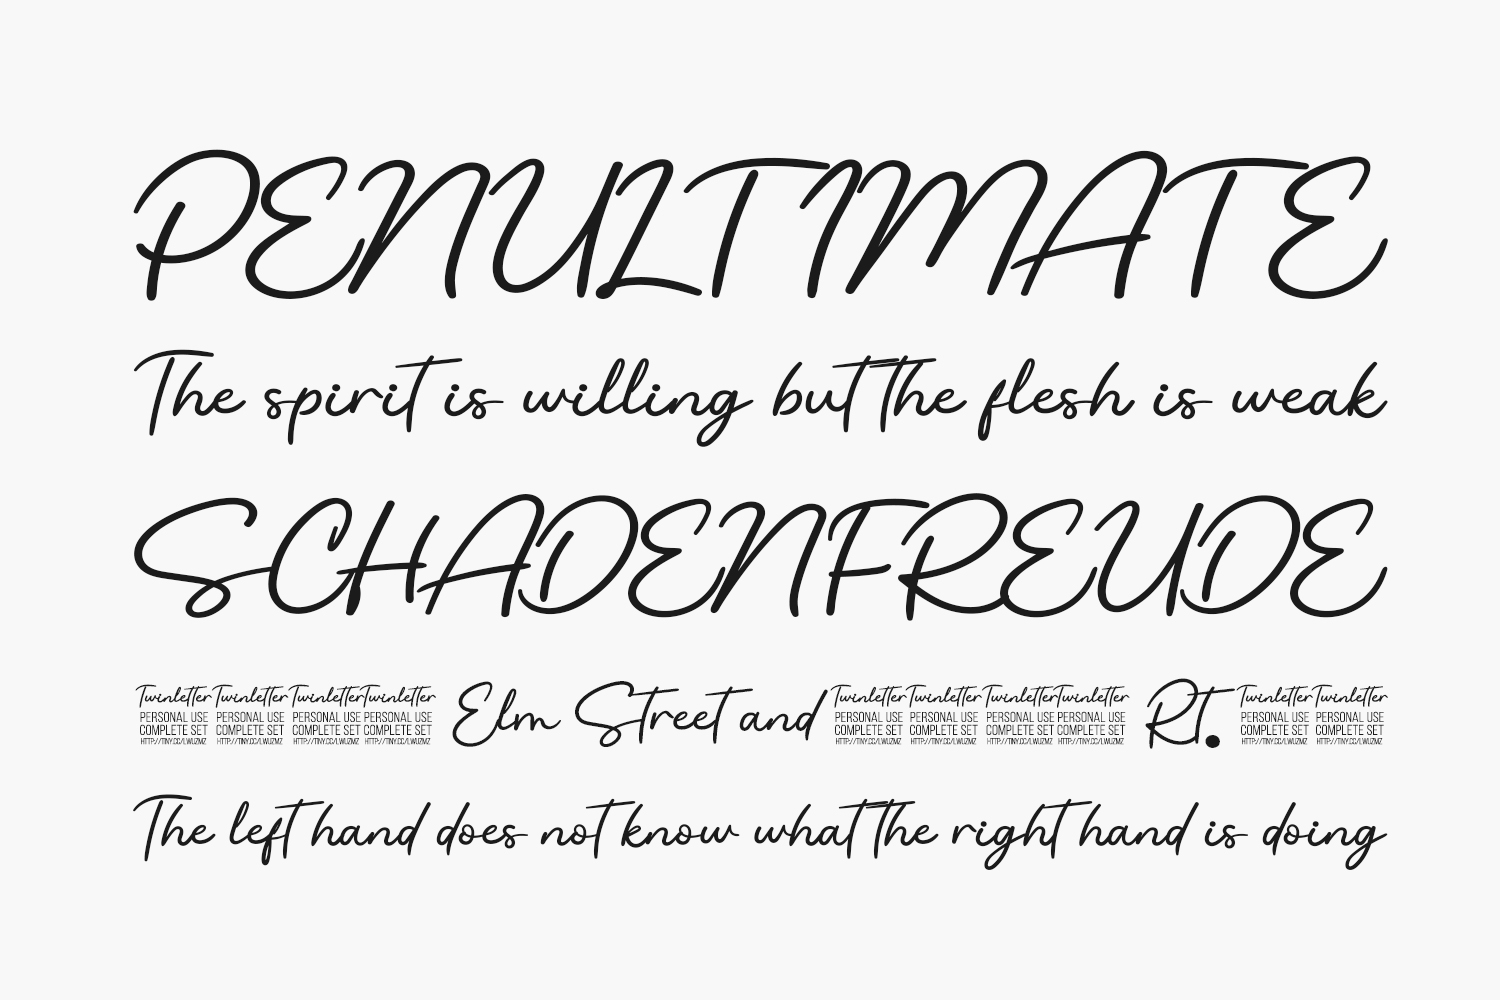 PENULTIMATE
The spirit is willing but the flesh is weak
SCHADENFREUDE
Twinletter Twinletter Twinletter Twinletter Elm Street and Twinletter Twinletter Twinletter Twinletter Rt. Twinletter Twinletter
PERSONAL USE PERSONAL USE PERSONAL USE PERSONAL USE PERSONAL USE PERSONAL USE PERSONAL USE PERSONAL USE PERSONAL USE PERSONAL USE
COMPLETE SET COMPLETE SET COMPLETE SET COMPLETE SET COMPLETE SET COMPLETE SET COMPLETE SET COMPLETE SET COMPLETE SET COMPLETE SET
HTTP://TINY.CC/LWUZMZ HTTP://TINY.CC/LWUZMZ HTTP://TINY.CC/LWUZMZ HTTP://TINY.CC/LWUZMZ HTTP://TINY.CC/LWUZMZ HTTP://TINY.CC/LWUZMZ HTTP://TINY.CC/LWUZMZ HTTP://TINY.CC/LWUZMZ HTTP://TINY.CC/LWUZMZ HTTP://TINY.CC/LWUZMZ
The left hand does not know what the right hand is doing